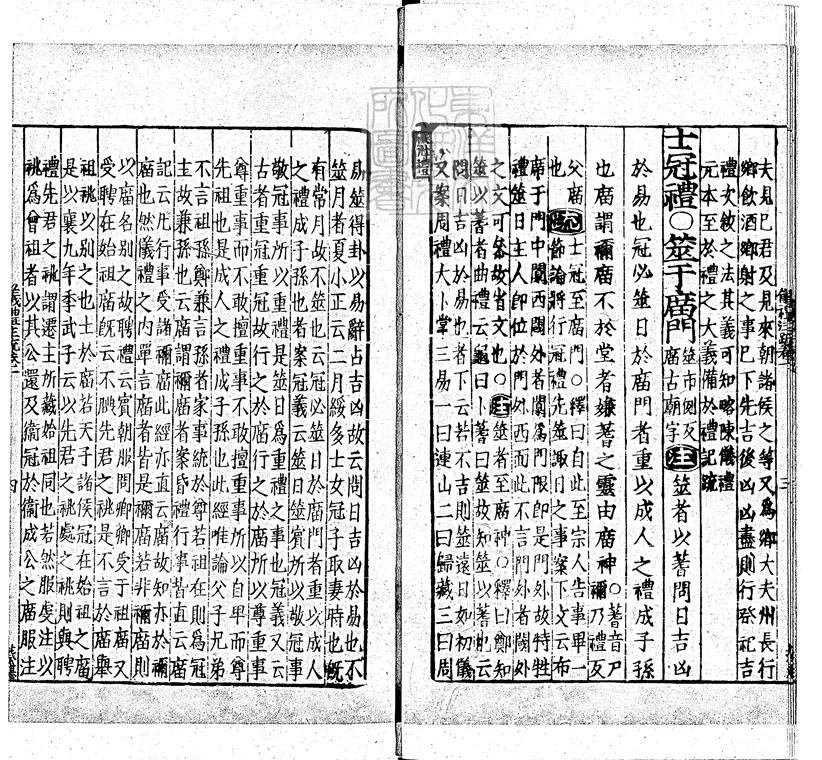 夫見巳君及見來朝諸侯之等又爲鄉大夫州長行
鄉飲酒鄉射之事已下先吉後凶凶盡則行祭祀吉
禮次敘之法其義可知略陳儀禮
元本至於禮之大義備於禮記疏
士冠禮○筮于廟門筮市側反廟古朝字注筮者以蓍問日吉凶
於易也冠必筮日於廟門者重以成人之禮成子孫
也廟謂禰廟不於堂者嫌蓍之靈由廟神○蓍音尸禰乃禮反
父廟疏士冠至廟門○釋曰自此至宗人告事畢一
也節論將行冠禮先筮諏日之事案下文云布
席于門中闑西閾外者闑爲門限即是門外故特牲
禮筮日主人即位於門外西面此不言門外者閾外
之文可參故省文也注筮者至廟神○釋曰鄭知
筮以蓍者曲禮云龜曰卜蓍曰筮故知筮以蓍也云
問日吉凶於易也者下云若不吉則筮遠日如初儀
又案周禮大卜掌三易一曰連山二曰歸藏三曰周
易筮得卦以易辭占吉凶故云問日吉凶於易也不
筮月者夏小正云二月綏多士女冠子取妻時也既
有常月故不筮也云冠必筮日於廟門者重以成人
之禮成子孫也者案冠義云筮日筮賓所以敬冠事
敬冠事所以重禮是筮日爲重禮之事也冠義又云
古者重冠重冠故行之於廟行之於廟所以尊重事
尊重事而不敢擅重事不敢擅重事所以自卑而尊
先祖也是成人之禮成子孫也此經唯論父子兄弟
不言祖孫鄭兼言孫者家事統於尊若祖在則爲冠
主故兼孫也云廟謂禰廟者案昏禮行事皆直云廟
記云凡行事受諸禰廟此經亦直云廟故知亦於禰
廟也然儀禮之内單言廟者皆是禰廟若非禰廟則
以廟名別之故聘禮云賓朝服問卿卿受于祖廟又
受聘在始祖廟既云不腆先君之祧是不言於廟舉
祖祧以別之也士於廟若天子諸侯冠在始祖之廟
是以襄九年季武子云以先君之祧處之祧則與聘
禮先君之祧謂遷主所藏始祖同也若然服虔注以
祧爲曾祖者以其公還及衞冠於衞成公之廟服注